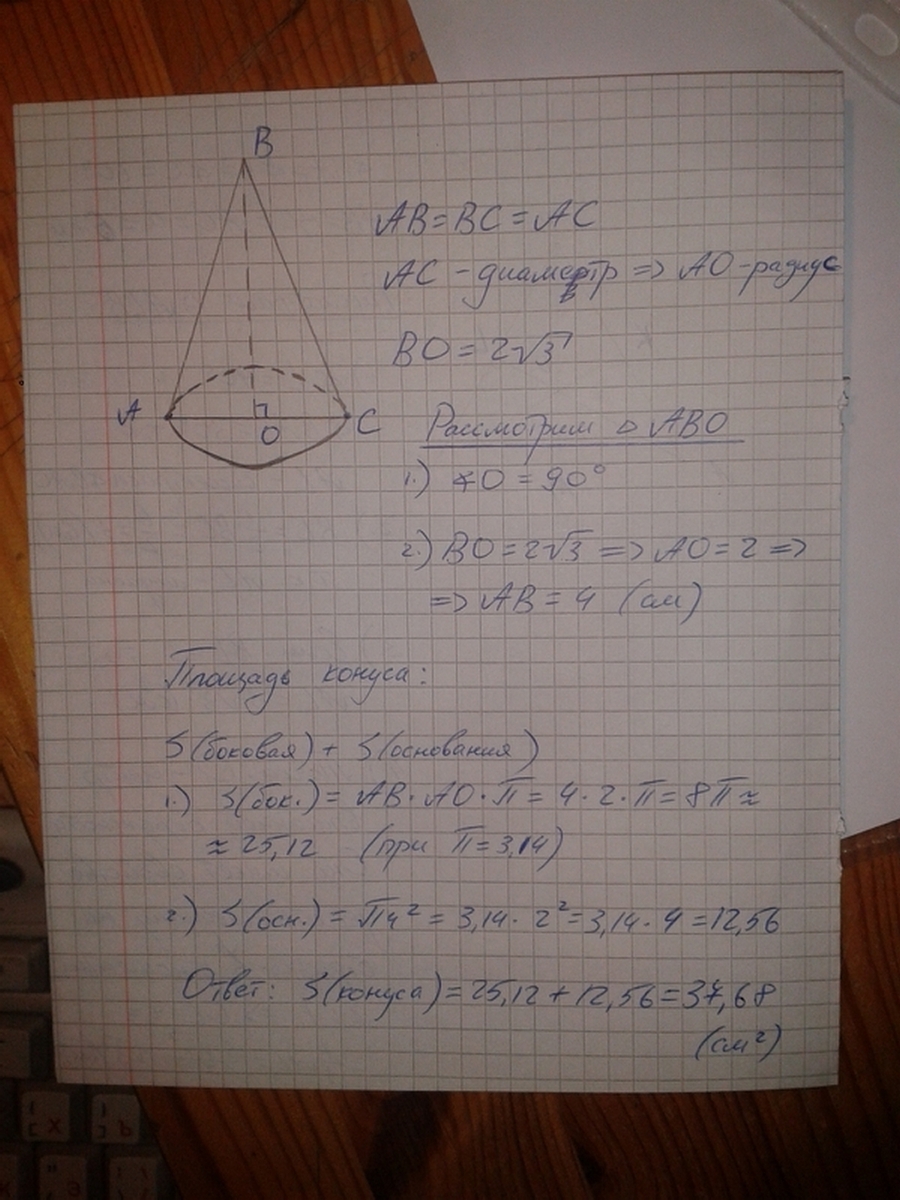 B
AB=BC=AC
AC - диаметр => AO - радиус
BO = 2√3
A O C
Рассмотрим △ ABO
1.) ∢O = 90°
2.) BO = 2√3 => AO = 2 =>
=> AB = 4 (см)
Площадь конуса:
S(боковая) + S(основания)
1.) S(бок.) = AB · AO · π = 4 · 2 · π = 8π ≈
≈ 25,12 (при π = 3,14)
2.) S(осн.) = πч² = 3,14 · 2² = 3,14 · 4 = 12,56
Ответ: S(конуса) = 25,12 + 12,56 = 37,68
(см²)